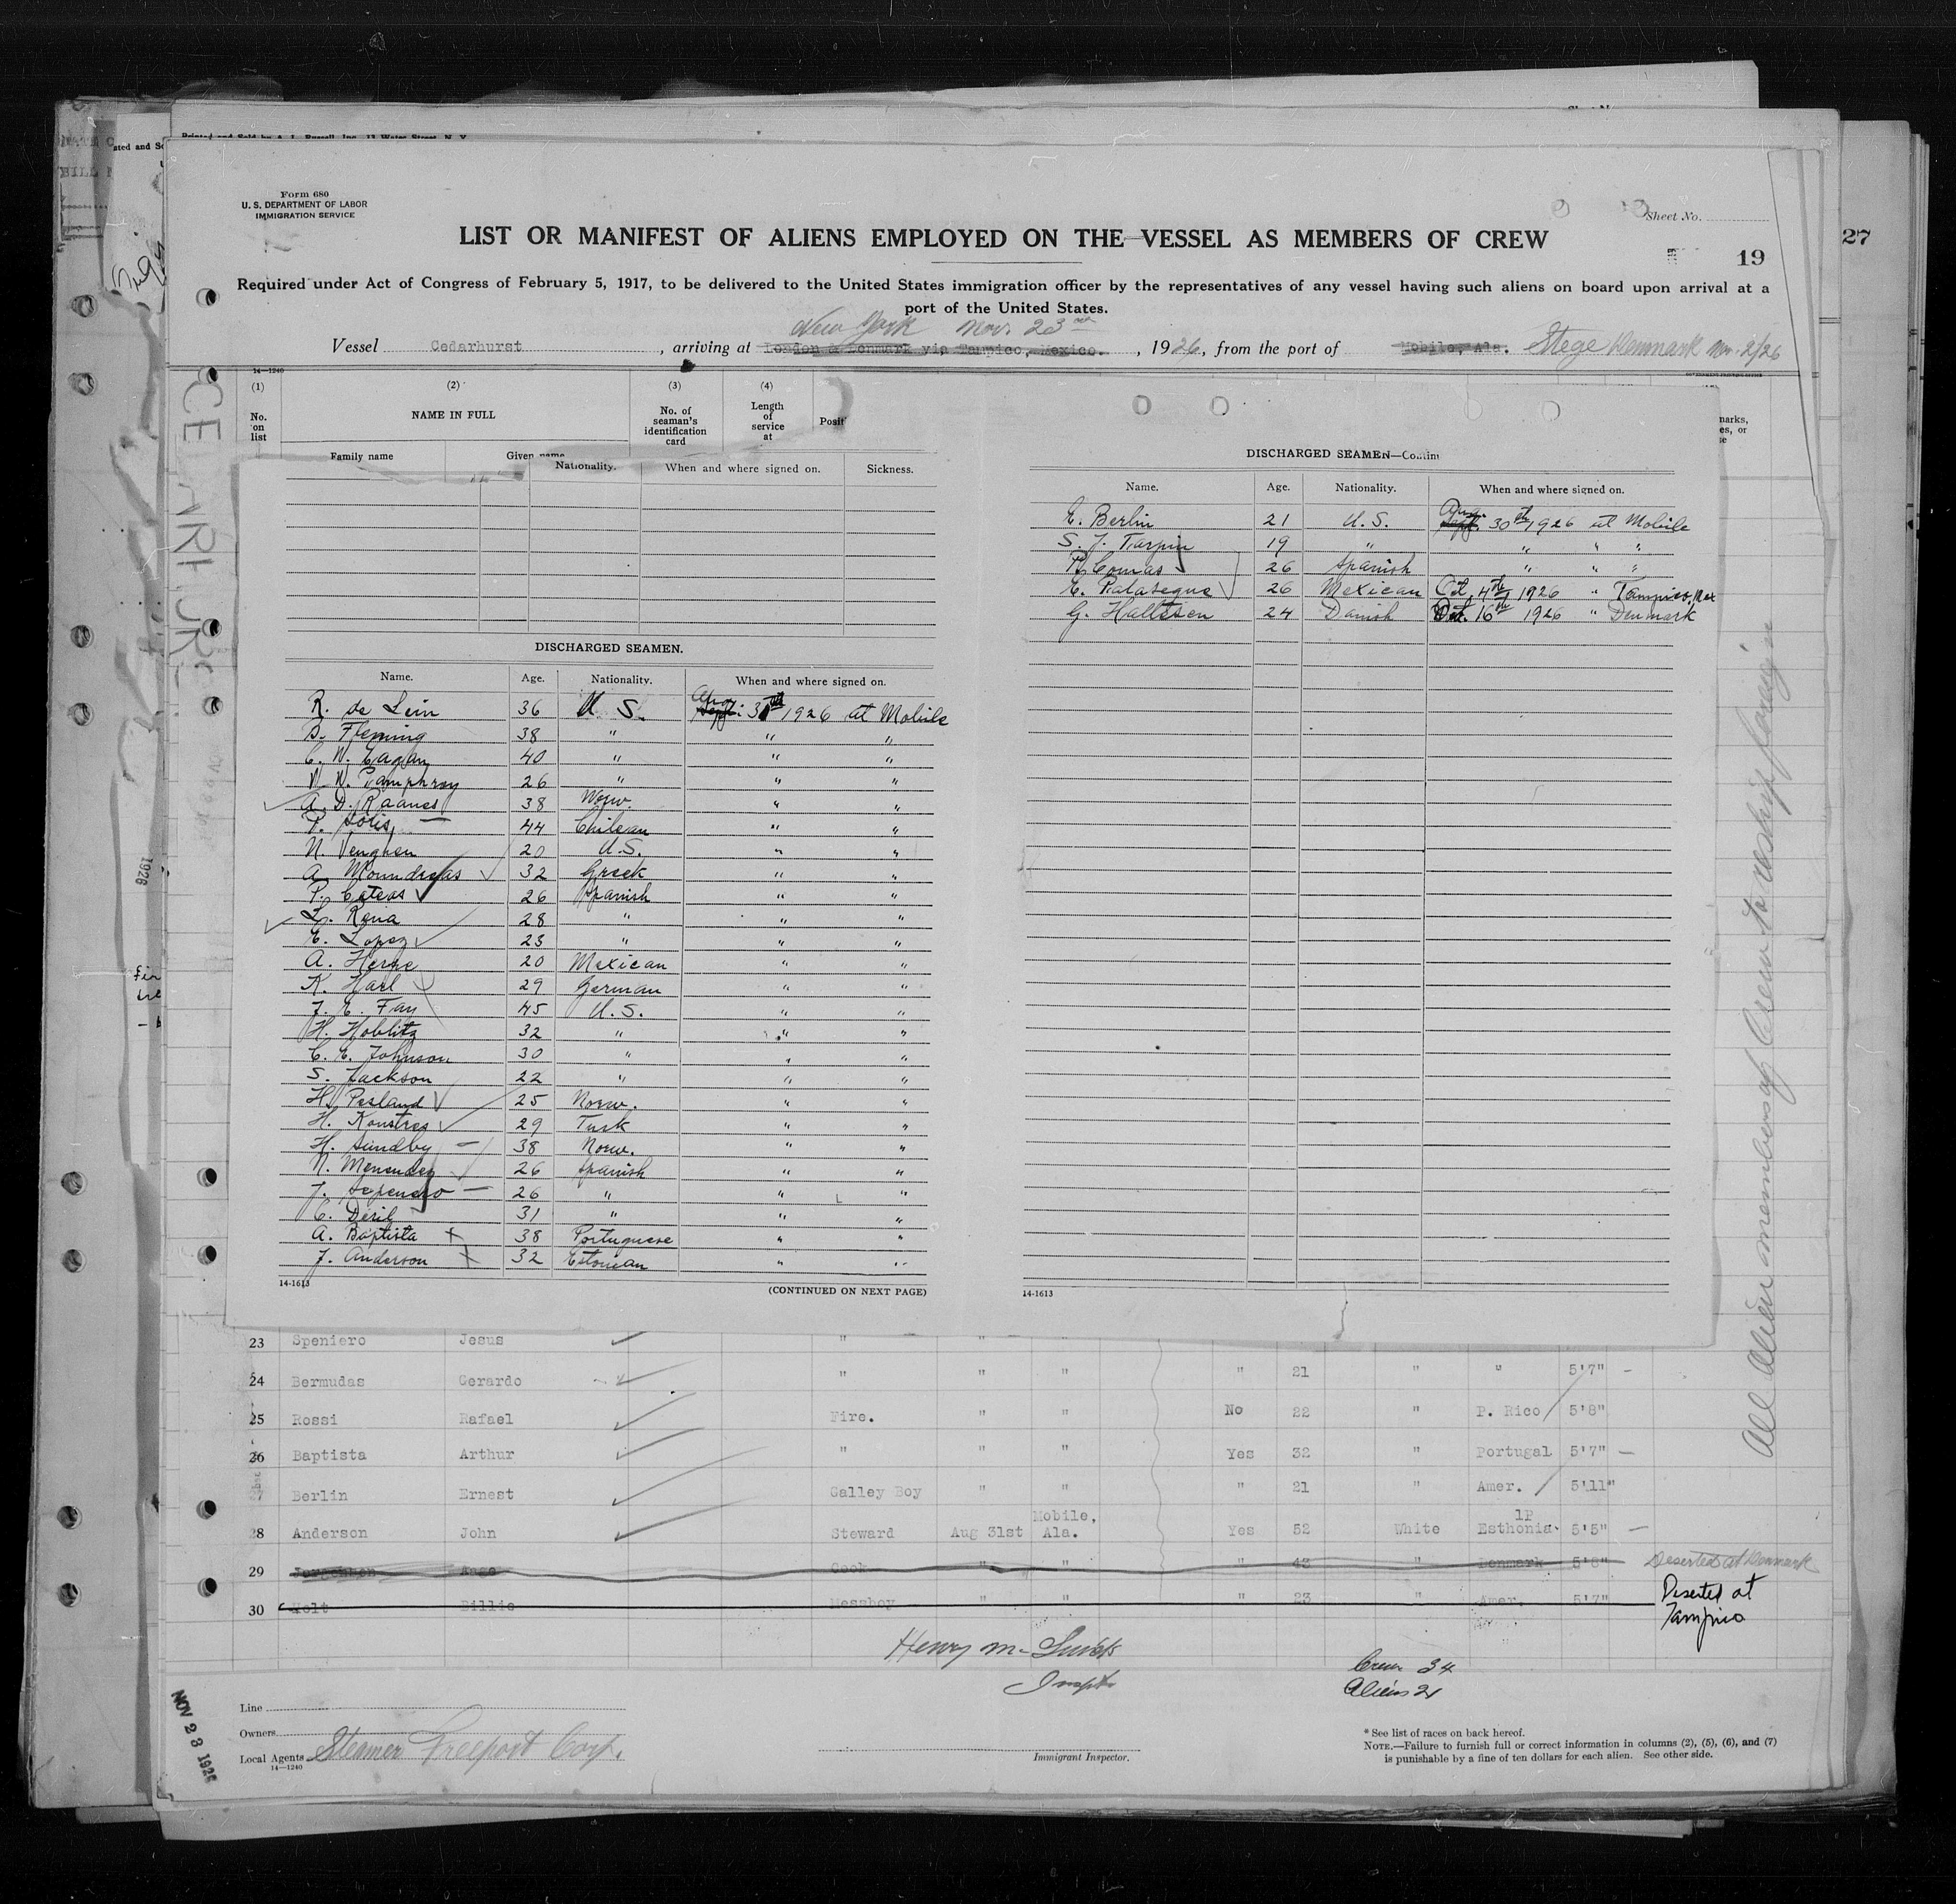 Printed and Sold by A. L. Russell, Inc., 11 Water Street, N. Y.
Form 680
U. S. DEPARTMENT OF LABOR
IMMIGRATION SERVICE
Sheet No.
LIST OR MANIFEST OF ALIENS EMPLOYED ON THE VESSEL AS MEMBERS OF CREW
19
27
Required under Act of Congress of February 5, 1917, to be delivered to the United States immigration officer by the representatives of any vessel having such aliens on board upon arrival at a
port of the United States.
New York Nov. 23rd
Vessel Cedarhurst, arriving at London & Denmark via Tampico, Mexico., 1926, from the port of Mobile, Ala. Stege Denmark Nov. 2/26
14-1240
(1) (2) (3) (4)
No. on list NAME IN FULL No. of seaman's identification card Length of service at Posit
Family name Given name
Nationality. When and where signed on. Sickness.
DISCHARGED SEAMEN.
Name. Age. Nationality. When and where signed on.
R. de Lein 36 U.S. Aug. 30th 1926 at Mobile
D. Fleming 38 " " "
C. W. Eagan 40 " " "
W. W. Pamphrey 26 " " "
A. D. Raanes 38 Norw. " "
P. Solis 44 Chilean " "
N. Venghen 20 U.S. " "
A. Moundreas 32 Greek " "
P. Cateas 26 Spanish " "
L. Rena 28 " " "
E. Lopez 23 " " "
A. Herse 20 Mexican " "
K. Harl 29 German " "
J. E. Fay 45 U.S. " "
H. Hoblitz 32 " " "
C. E. Johnson 30 " " "
S. Jackson 22 " " "
H. Pesland 25 Norw. " "
H. Konstres 29 Turk " "
H. Sundby 38 Norw. " "
N. Menendez 26 Spanish " "
J. Sepenero 26 " " "
C. Deril 31 " " "
A. Baptista 38 Portuguese " "
J. Anderson 32 Estonian " "
14-1613 (CONTINUED ON NEXT PAGE)
DISCHARGED SEAMEN—Contin
Name. Age. Nationality. When and where signed on.
E. Berlin 21 U.S. Aug. 30th 1926 at Mobile
S. J. Tarpin 19 " " " "
P. Comas 26 Spanish " " "
E. Palasegue 26 Mexican Oct. 4th 1926 " Tampico, Mex
G. Halltsen 24 Danish Oct. 16th 1926 " Denmark
14-1613
All Alien members of Crew to reship foreign
23 Speniero Jesus " " "
24 Bermudas Gerardo " " " " 21 " " 5'7" -
25 Rossi Rafael Fire. " " No 22 " P. Rico 5'8"
26 Baptista Arthur " " " Yes 32 " Portugal 5'7" -
27 Berlin Ernest Galley Boy " " " 21 " Amer. 5'11"
28 Anderson John Steward Aug 31st Mobile, Ala. Yes 52 White 1P Esthonia. 5'5" -
29 Jorgensen Aage Cook " " " 43 " Denmark 5'6" Deserted at Denmark
30 Holt Billie Messboy " " " 23 " Amer. 5'7" Deserted at Tampico
Inspt.
Crew 34
Aliens 21
NOV 23 1926
Line
Owners
Local Agents Steamer Freeport Corp.
14-1240
Immigrant Inspector.
* See list of races on back hereof.
NOTE.—Failure to furnish full or correct information in columns (2), (5), (6), and (7)
is punishable by a fine of ten dollars for each alien. See other side.